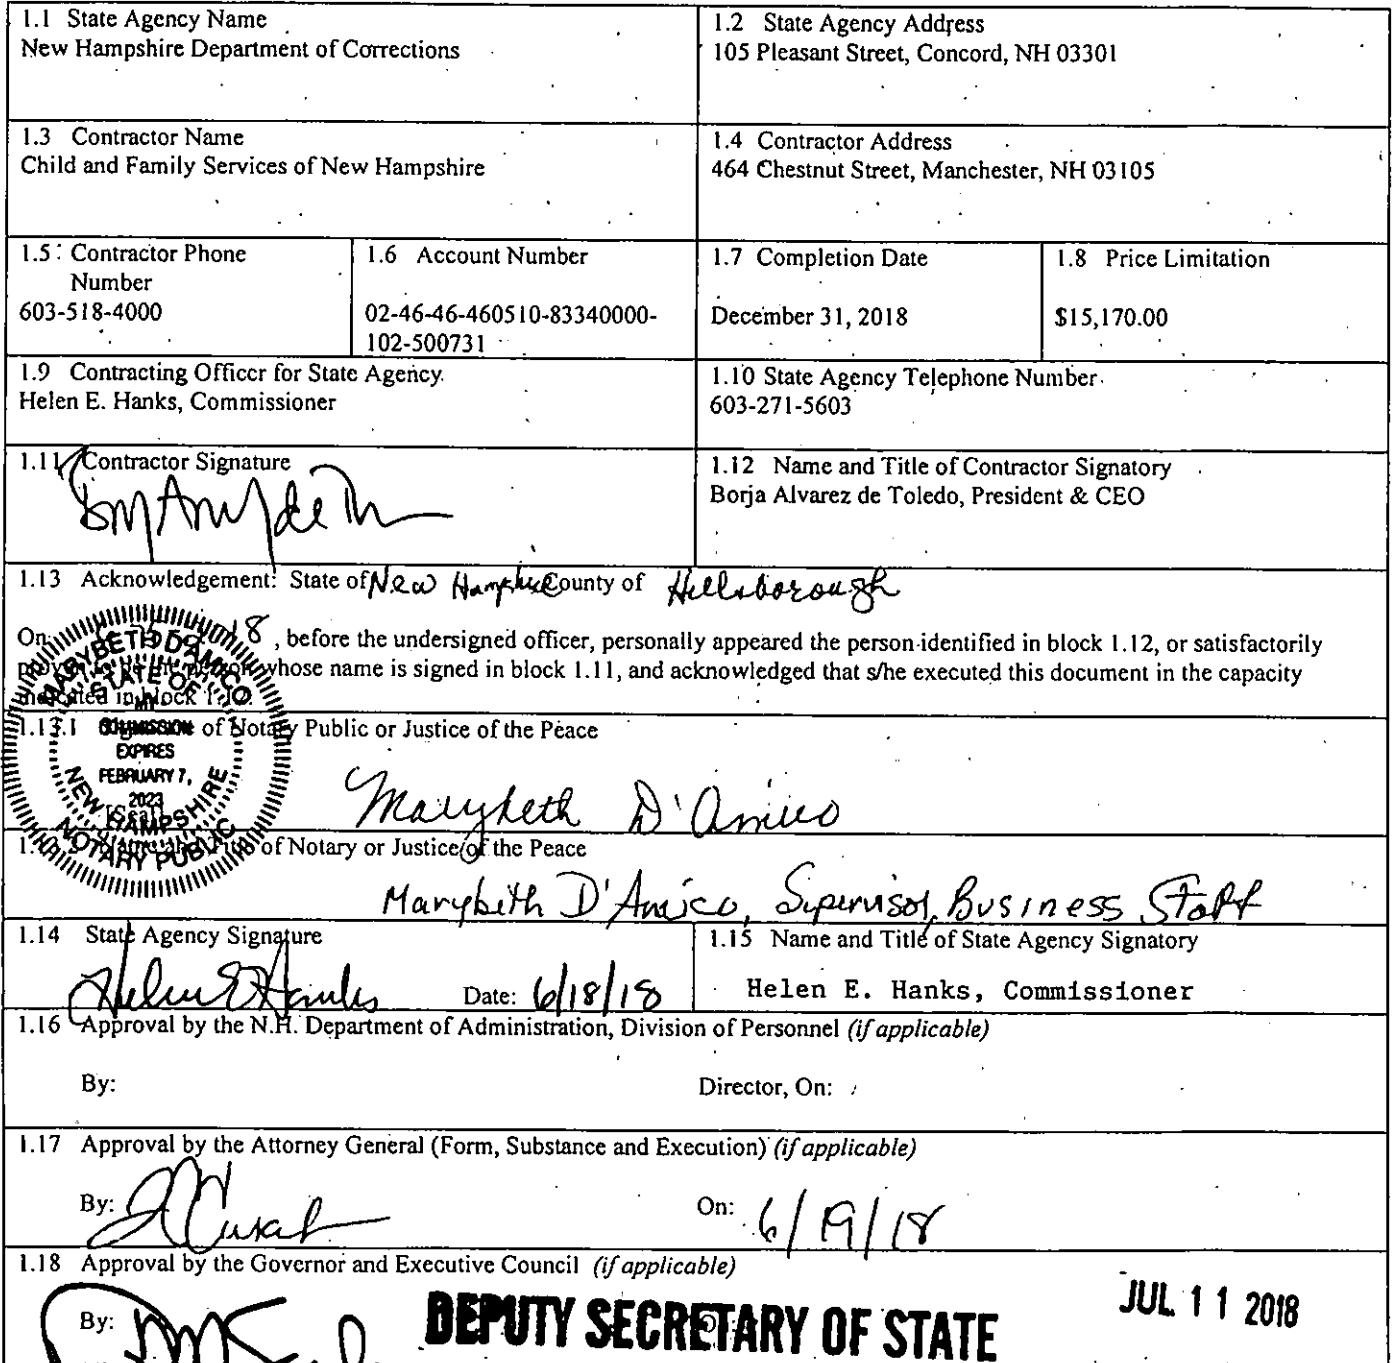 1.1 State Agency Name
New Hampshire Department of Corrections
1.2 State Agency Address
105 Pleasant Street, Concord, NH 03301
1.3 Contractor Name
Child and Family Services of New Hampshire
1.4 Contractor Address
464 Chestnut Street, Manchester, NH 03105
1.5 Contractor Phone
Number
603-518-4000
1.6 Account Number
02-46-46-460510-83340000-
102-500731
1.7 Completion Date
December 31, 2018
1.8 Price Limitation
$15,170.00
1.9 Contracting Officer for State Agency
Helen E. Hanks, Commissioner
1.10 State Agency Telephone Number
603-271-5603
1.11 Contractor Signature
1.12 Name and Title of Contractor Signatory
Borja Alvarez de Toledo, President & CEO
1.13 Acknowledgement: State of New Hampshire County of Hillsborough
On 18, before the undersigned officer, personally appeared the person identified in block 1.12, or satisfactorily
whose name is signed in block 1.11, and acknowledged that s/he executed this document in the capacity
in block
MARYBETH D'AMICO
STATE OF
MY
COMMISSION
EXPIRES
FEBRUARY 7,
2023
NEW HAMPSHIRE
NOTARY PUBLIC
1.13.1 of Notary Public or Justice of the Peace
[Seal]
Marybeth D'Amico
of Notary or Justice of the Peace
Marybeth D'Amico, Supervisor, Business Staff
1.14 State Agency Signature
Helen E Hanks Date: 6/18/18
1.15 Name and Title of State Agency Signatory
Helen E. Hanks, Commissioner
1.16 Approval by the N.H. Department of Administration, Division of Personnel (if applicable)
By: Director, On:
1.17 Approval by the Attorney General (Form, Substance and Execution) (if applicable)
By: On: 6/19/18
1.18 Approval by the Governor and Executive Council (if applicable)
By: DEPUTY SECRETARY OF STATE JUL 11 2018